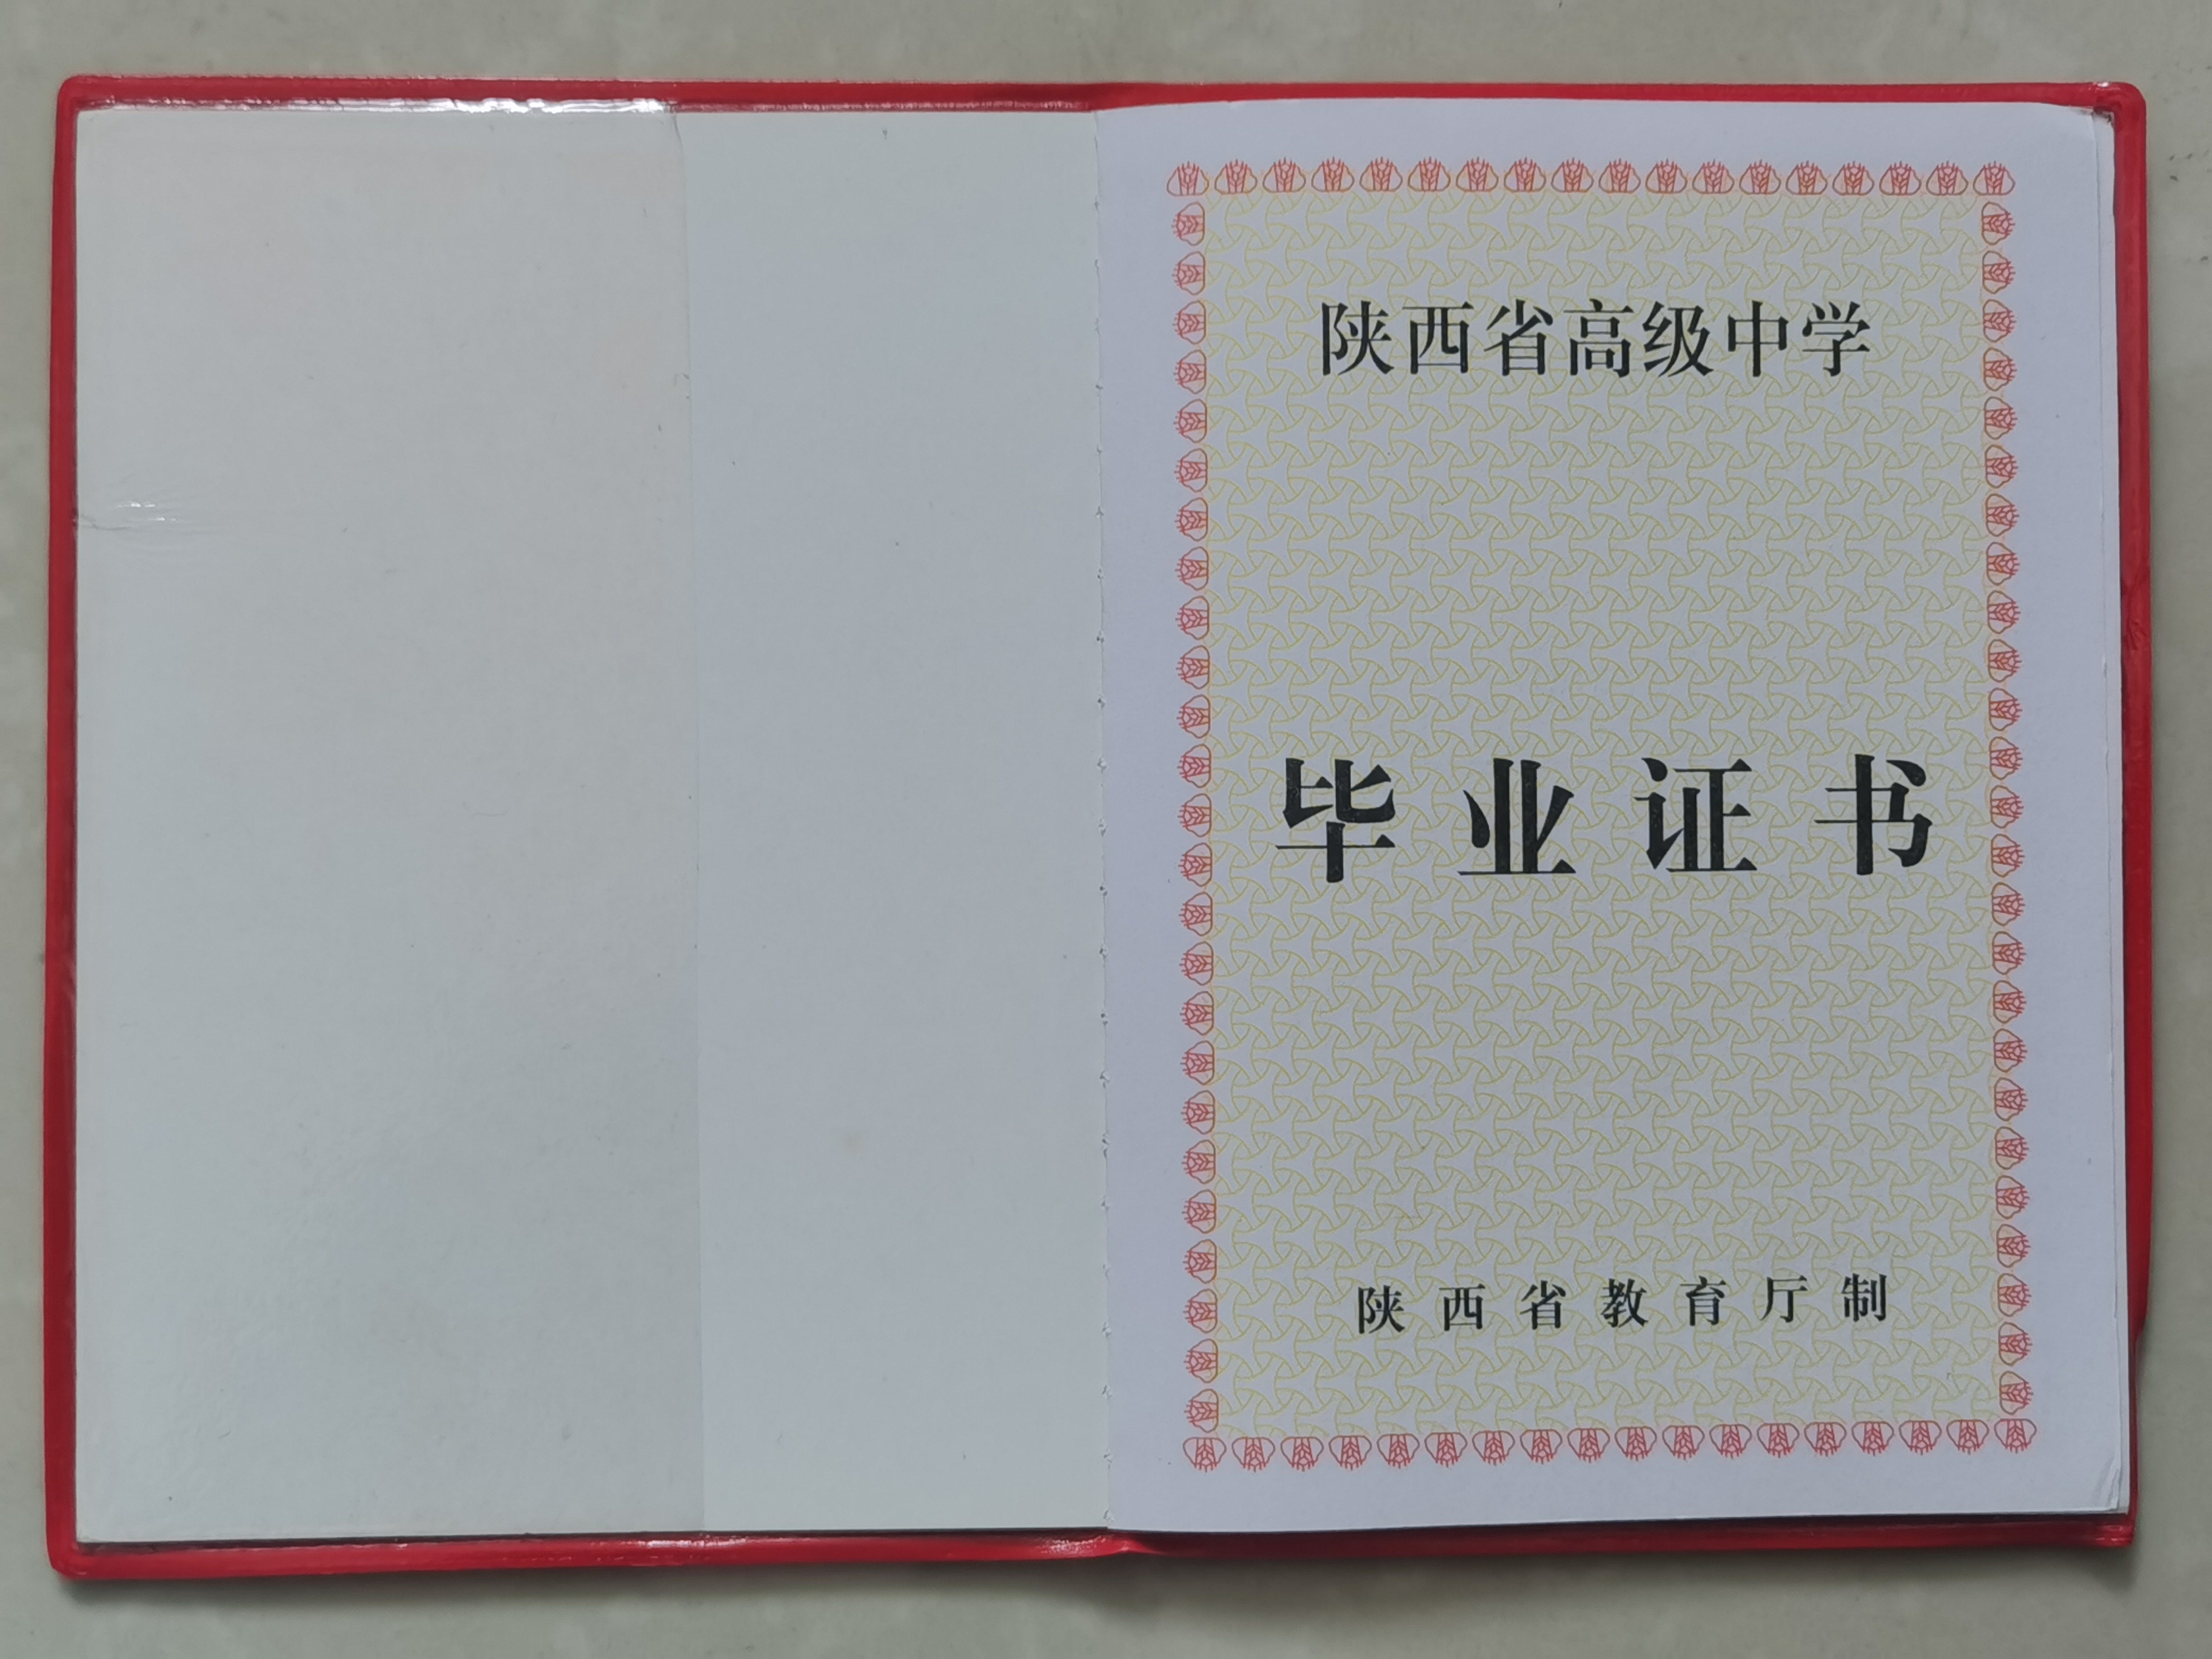 陕西省高级中学
毕业证书
陕西省教育厅制